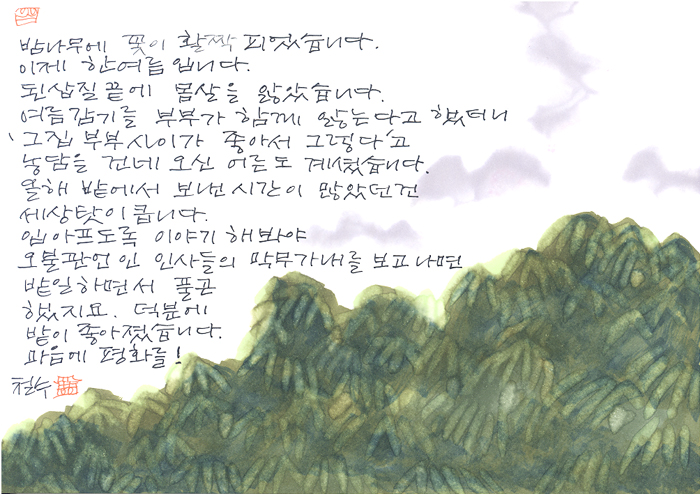 밤나무에 꽃이 활짝 피었습니다.
이제 한여름입니다.
된삽질끝에 몸살을 앓았습니다.
여름감기를 부부가 함께 앓는다고 했더니
'그집 부부사이가 좋아서 그렇다'고
농담을 건네 오신 어른도 계셨습니다.
올해 밭에서 보낸 시간이 많았던건
세상탓이 큽니다.
입아프도록 이야기 해봐야
오불관언인 인사들의 막무가내를 보고나면
밭일하면서 풀곤
했지요. 덕분에
밭이 좋아졌습니다.
마음에 평화를!
철수